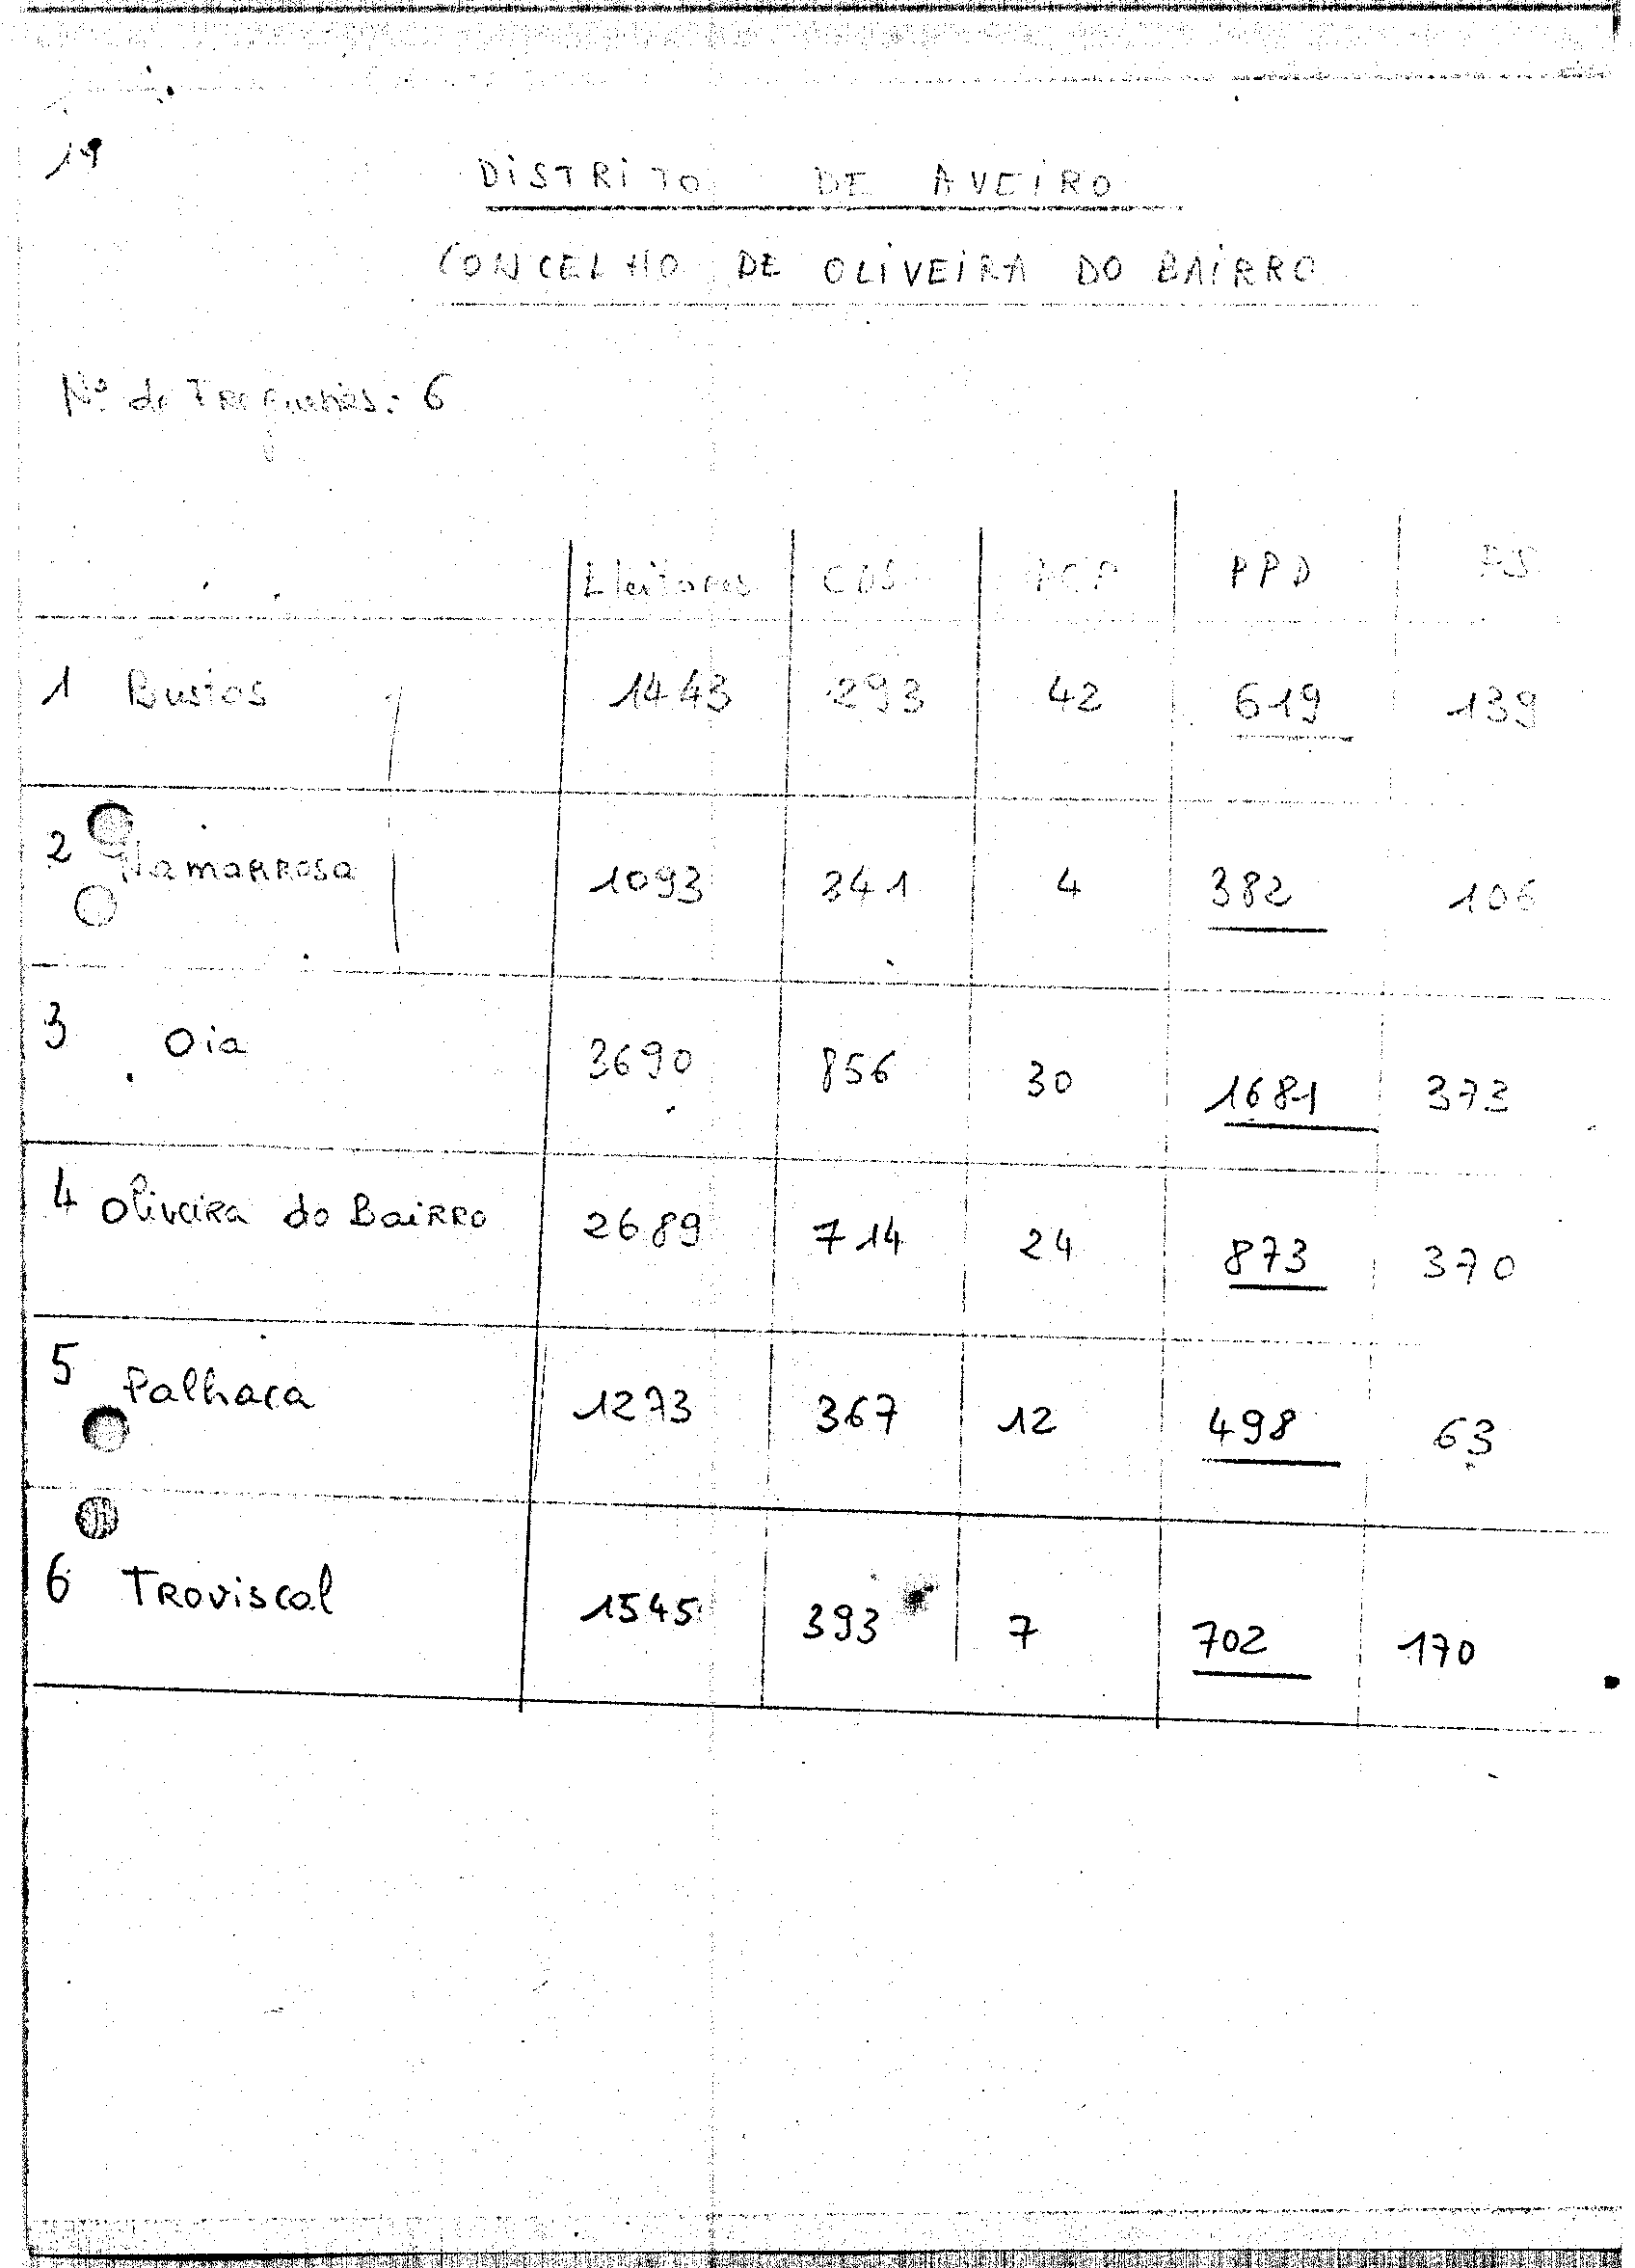 19
DISTRITO DE AVEIRO
CONCELHO DE OLIVEIRA DO BAIRRO
Nº de Freguesias: 6
Eleitores CDS PCP PPD PS
1 Bustos 1443 293 42 619 139
2 Mamarrosa 1093 341 4 382 106
3 Oia 3690 856 30 1681 373
4 Oliveira do Bairro 2689 714 24 873 370
5 Palhaca 1273 367 12 498 63
6 Troviscal 1545 393 7 702 170